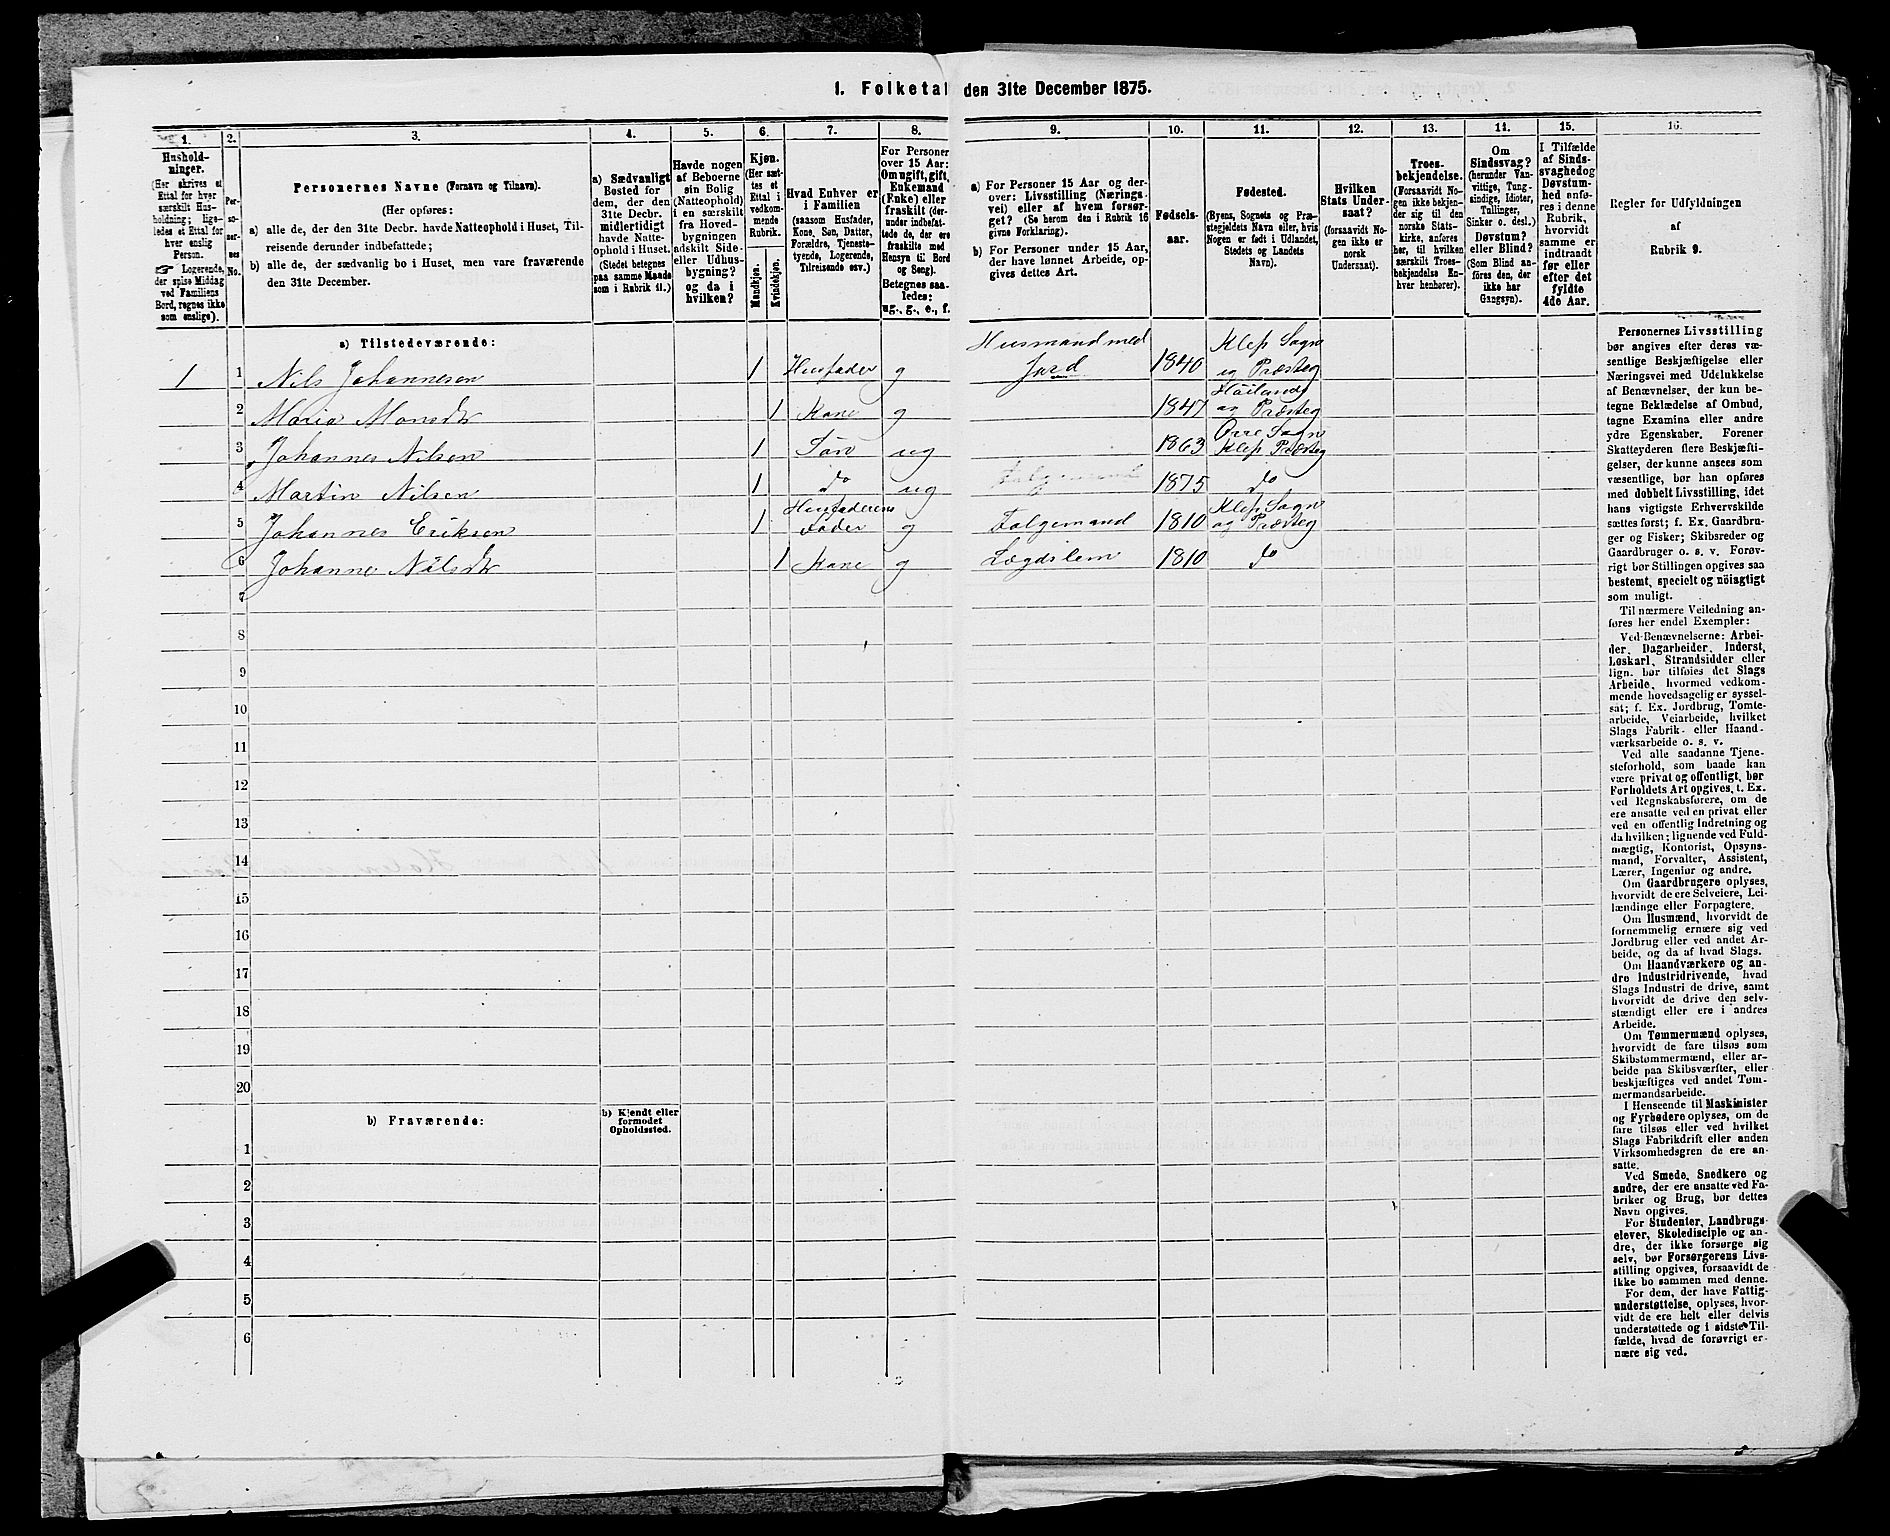 1. Folketal den 31te December 1875.
1.
2.
3.
4.
5.
6.
7.
8.
9.
10.
11.
12.
13.
14.
15.
16.
Hushold-
ninger.
(Her skrives et
Ettal for hver
særskilt Hus-
holdning; lige-
ledes et Ettal for
hver enslig
Person.
☞ Logerende,
der spise Middag
ved Familiens
Bord, regnes ikke
som enslige).
Per-
so-
ner-
nes
No.
Personernes Navne (Fornavn og Tilnavn).
(Her opføres:
a) alle de, der den 31te Decbr. havde Natteophold i Huset, Til-
reisende derunder indbefattede;
b) alle de, der sædvanlig bo i Huset, men vare fraværende
den 31te December.
a) Sædvanligt
Bosted for
dem, der den
31te Decbr.
midlertidigt
havde Natte-
ophold i Huset.
(Stedet betegnes
paa samme Maade
som i Rubrik 11.)
Havde nogen
af Beboerne
sin Bolig
(Natteophold)
i en særskilt
fra Hoved-
bygningen
adskilt Side-
eller Udhus-
bygning?
og da i
hvilken?
Kjøn.
(Her sæt-
tes et
Ettal i
vedkom-
mende
Rubrik.
Mandkjøn.
Kvindekjøn.
Hvad Enhver er
i Familien
(saasom Husfader,
Kone, Søn, Datter,
Forældre, Tjeneste-
tyende, Logerende,
Tilreisende osv.)
For Personer
over 15 Aar:
Om ugift, gift,
Enkemand
(Enke) eller
fraskilt (der-
under indbefat-
tede de, der
ere fraskilte med
Hensyn til Bord
og Seng).
Betegnes saa-
ledes:
ug., g., e., f.
a) For Personer 15 Aar og der-
over: Livsstilling (Nærings-
vei) eller af hvem forsør-
get? (Se herom den i Rubrik 16
givne Forklaring).
b) For Personer under 15 Aar,
der have lønnet Arbeide, op-
gives dettes Art.
Fødsels-
aar.
Fødested.
(Byens, Sognets og Præ-
stegjeldets Navn eller, hvis
Nogen er født i Udlandet,
Stedets og Landets
Navn).
Hvilken
Stats Under-
saat?
(forsaavidt No-
gen ikke er
norsk
Undersaat).
Troes-
bekjendelse.
(Forsaavidt No-
gen ikke bekjen-
der sig til den
norske Stats-
kirke, anføres
her, til hvilken
særskilt Troes-
bekjendelse En-
hver henhører).
Om
Sindssvag?
(herunder Van-
vittige, Tung-
sindige, Idioter,
Tullinger,
Sinker o. desl.)
Døvstum?
eller Blind?
(Som Blind an-
føres den, der
ikke har
Gangsyn).
I Tilfælde
af Sinds-
svaghed og
Døvstum-
hed anfø-
res i denne
Rubrik,
hvorvidt
samme er
indtraadt
før eller
efter det
fyldte
4de Aar.
Regler for Udfyldningen
af
Rubrik 9.
a) Tilstedeværende:
1 1 Nils Johannesen 1 Husfader g Husmand med Jord 1840 Klep Sogn og Præsteg
2 Maria Monsdtr 1 Kone g 1847 Høilands og Præsteg
3 Johannes Nilsen 1 Søn ug 1863 Orre Sogn Klep Præsteg
4 Martin Nilsen 1 do ug 1875 do
5 Johannes Eriksen 1 Husfaderens Fader g Folgemand 1810 Klep Sogn og Præsteg
6 Johanne Nilsdtr 1 Kone g Lægdslem 1810 do
7
8
9
10
11
12
13
14
15
16
17
18
19
20
b) Fraværende:
b) Kjendt eller
formodet
Opholdssted.
1
2
3
4
5
6
Personernes Livsstilling
bør angives efter deres væ-
sentlige Beskjæftigelse eller
Næringsvei med Udelukkelse
af Benævnelser, der kun be-
tegne Beklædelse af Ombud,
tagne Examina eller andre
ydre Egenskaber. Forener
Skatteyderen flere Beskjæfti-
gelser, der kunne ansees som
væsentlige, bør han opføres
med dobbelt Livsstilling, idet
hans vigtigste Erhvervskilde
sættes først; f. Ex. Gaardbru-
ger og Fisker; Skibsreder og
Gaardbruger o. s. v. Forøv-
rigt bør Stillingen opgives saa
bestemt, specielt og nöiagtigt
som muligt.
Til nærmere Veiledning an-
føres her endel Exempler:
Ved Benævnelserne: Arbei-
der, Dagarbeider, Inderst,
Løskarl, Strandsidder eller
lign. bør tilføies det Slags
Arbeide, hvormed vedkom-
mende hovedsagelig er syssel-
sat; f. Ex. Jordbrug, Tomte-
arbeide, Veiarbeide, hvilket
Slags Fabrik- eller Haand-
værksarbeide o. s. v.
Ved alle saadanne Tjene-
steforhold, som baade kan
være privat og offentligt, bør
Forholdets Art opgives, t. Ex.
ved Regnskabsførere, om de
ere ansatte ved en privat eller
ved en offentlig Indretning og
da hvilken; lignende ved Fuld-
mægtig, Kontorist, Opsyns-
mand, Forvalter, Assistent,
Lærer, Ingeniør og andre.
Om Gaardbrugere oplyses,
hvorvidt de ere Selveiere, Lei-
lændinge eller Forpagtere.
Om Husmænd, hvorvidt de
fornemmelig ernære sig ved
Jordbrug eller ved andet Ar-
beide, og da af hvad Slags.
Om Haandværkere og an-
dre Industridrivende, hvad
Slags Industri de drive, samt
hvorvidt de drive den selv-
stændigt eller ere i andres
Arbeide.
Om Tømmermænd oplyses,
hvorvidt de fare tilsøs som
Skibstømmermænd, eller ar-
beide paa Skibsværfter, eller
beskjæftiges ved andet Tøm-
mermandsarbeide.
I Henseende til Maskinister
og Fyrbødere oplyses, om de
fare tilsøs eller ved hvilket
Slags Fabrikdrift eller anden
Virksomhedsgren de ere an-
satte.
Ved Smede, Snedkere og
andre, der ere ansatte ved Fa-
briker og Brug, bør dettes
Navn opgives.
For Studenter, Landbrugs-
elever, Skoledisciple og an-
dre, der ikke forsørge sig
selv, bør Forsørgerens Livs-
stilling opgives, forsaavidt de
ikke bo sammen med denne.
For dem, der have Fattig-
understøttelse, oplyses, hvor-
vidt de ere helt eller delvis
understøttede og i sidste Til-
fælde, hvad de forøvrigt er-
nære sig ved.